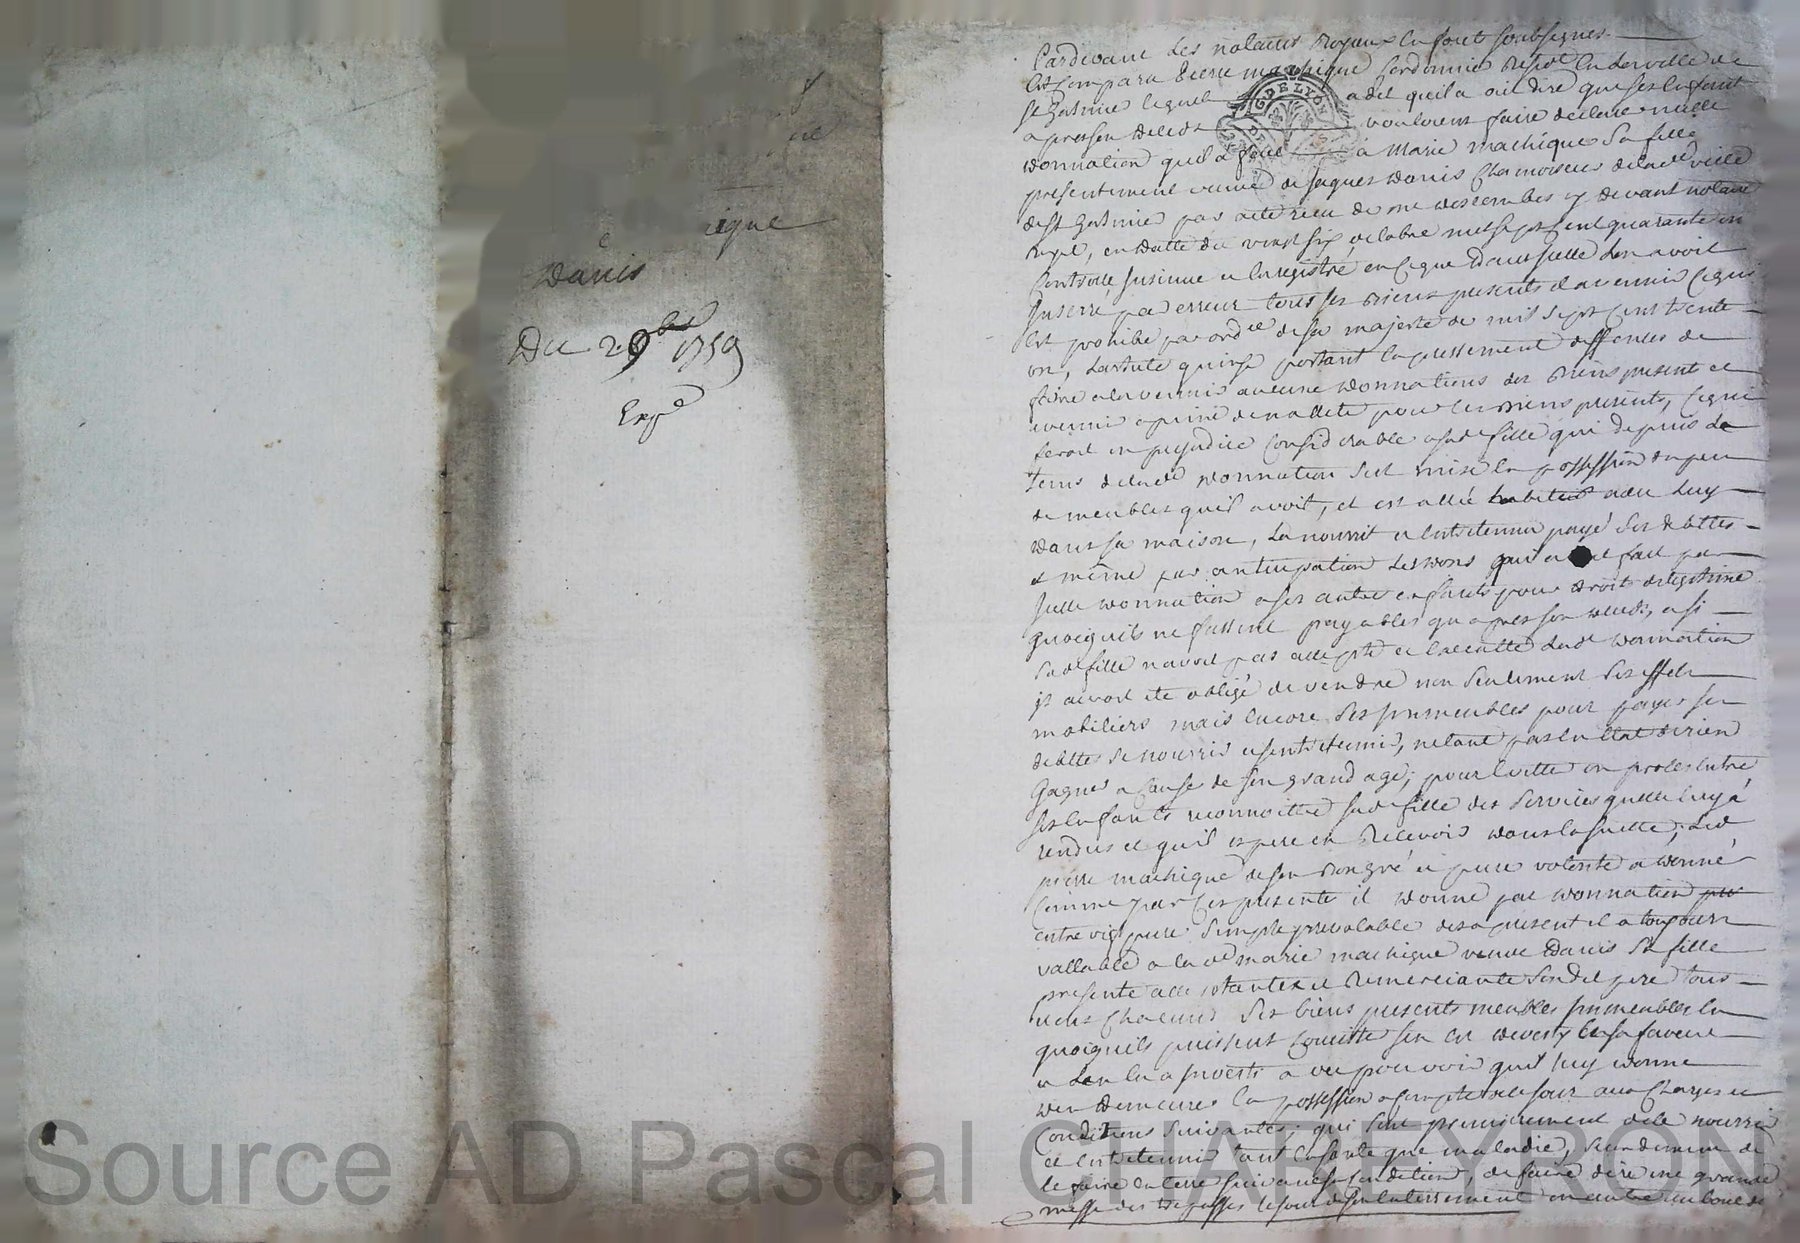 ique
Danis
Du 29bre 1759
Expe
Pardevant les notaires Royaux en forets soubsignes
Est Comparu Pierre machique Cordonnier Resid en la ville de
st Galmier lequel a dit quil a oui dire que ses Enfant
apres son deceds vouloient faire declare nulle
donnation quil a faite a Marie machique Sa fille
presentement veuve de Jaques Danis Chamoiseur de lad ville
de st Galmier par acte recu de me notaire
Royl, en datte du vingt six octobre mil sept cent quarante
Controllé Insinué et Enregistré en ce que dans Icelle Lon avoit
Inseré par erreur tous ses Biens presents et avennir Ce qui
Est prohibé par ordce de sa majesté de mil sept Cent trente
un, Larticle quinze portant Expressement deffences de
faire a lavennir aucune donnations des Biens present et
avennir a peine de nullité pour les Biens presents, Ce qui
feroit un prejudice Considerable a sad fille qui depuis le
tems de lad donnation sest mise En possession du peu
de meubles quil avoit, et est allé habiter avec Luy
dans sa maison, La nourrit et Entretenu payé ses debttes
et même par anticipation Les dons quil a fait par
Icelle donnation a ses autre enfants pour droits de legitime
quoiquils ne fussent payables qu apres son deceds, a si
Sad fille navoit pas accepté et Executté Lad donnation
Il auroit ete obligé de vendre non Seulement Ses Effets
mobiliers mais Encore Ses Immeubles pour payer ses
debttes se nourrir et sentretennir, netant pas En Etat de rien
Gagner a Cause de son grand age; pour Evitter un proces entre
ses Enfants reconnoitre sad fille des Services quelle luy a
rendus et quil espere en Recevoir dans la suitte, Led
pierre machique de son Bon gré et pure volonté a donné
Comme par Ces presente il donne par donnation
entre vifs pure Simple Irrevocable des a present et a toujours
vallable a lad marie machique veuve Danis Sa fille
presente acceptante et Remerciante Sondit pere tous
uns Chacuns Ses biens presents meubles Immeubles En
quoiquils puissent Consister sen Est devesty En sa faveur
et Len En a Investi a vec pouvoir quil luy donne
den demeurer En possession a Compter de ce Jour aux Charges et
Conditions Suivantes; qui sont premierement de le nourrir
et Entretennir tant En santé que maladie, secondement de
le faire enterre suivant sa Condition, de faire dire une grande
messe des trepasses le jour de son Enterrement au bout de
G DE LYON
Source AD Pascal CHAREYRON